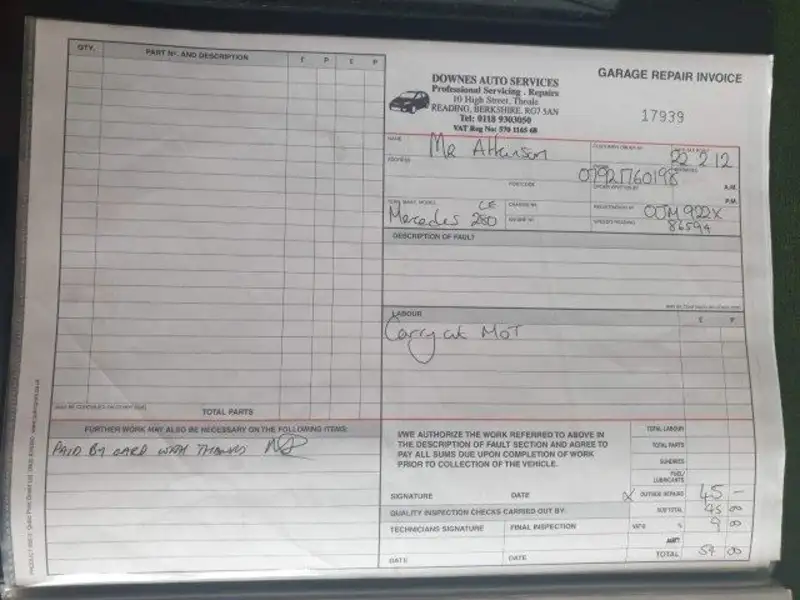 QTY.
PART Nº. AND DESCRIPTION
£ P £ P
DOWNES AUTO SERVICES
Professional Servicing . Repairs
10 High Street, Theale
READING, BERKSHIRE, RG7 5AN
Tel: 0118 9303050
VAT Reg No: 570 1165 68
GARAGE REPAIR INVOICE
17939
NAME
Mr Atkinson
22 2 12
ADDRESS
POSTCODE
07921760198
A.M.
P.M.
Mercedes 280 CE
CHASSIS Nº.
ENGINE Nº.
REGISTRATION Nº.
OJM 922X
SPEEDO READING
86594
DESCRIPTION OF FAULT
LABOUR
£ P
Carry out MOT
TOTAL PARTS
FURTHER WORK MAY ALSO BE NECESSARY ON THE FOLLOWING ITEMS:
PAID BY CARD WITH THANKS
I/WE AUTHORIZE THE WORK REFERRED TO ABOVE IN
THE DESCRIPTION OF FAULT SECTION AND AGREE TO
PAY ALL SUMS DUE UPON COMPLETION OF WORK
PRIOR TO COLLECTION OF THE VEHICLE.
SIGNATURE
DATE
QUALITY INSPECTION CHECKS CARRIED OUT BY:
TECHNICIANS SIGNATURE
FINAL INSPECTION
DATE
DATE
TOTAL LABOUR
TOTAL PARTS
SUNDRIES
FUEL/
LUBRICANTS
OUTSIDE REPAIRS 45 —
SUB TOTAL 45 00
VAT @ % 9 00
TOTAL 54 00